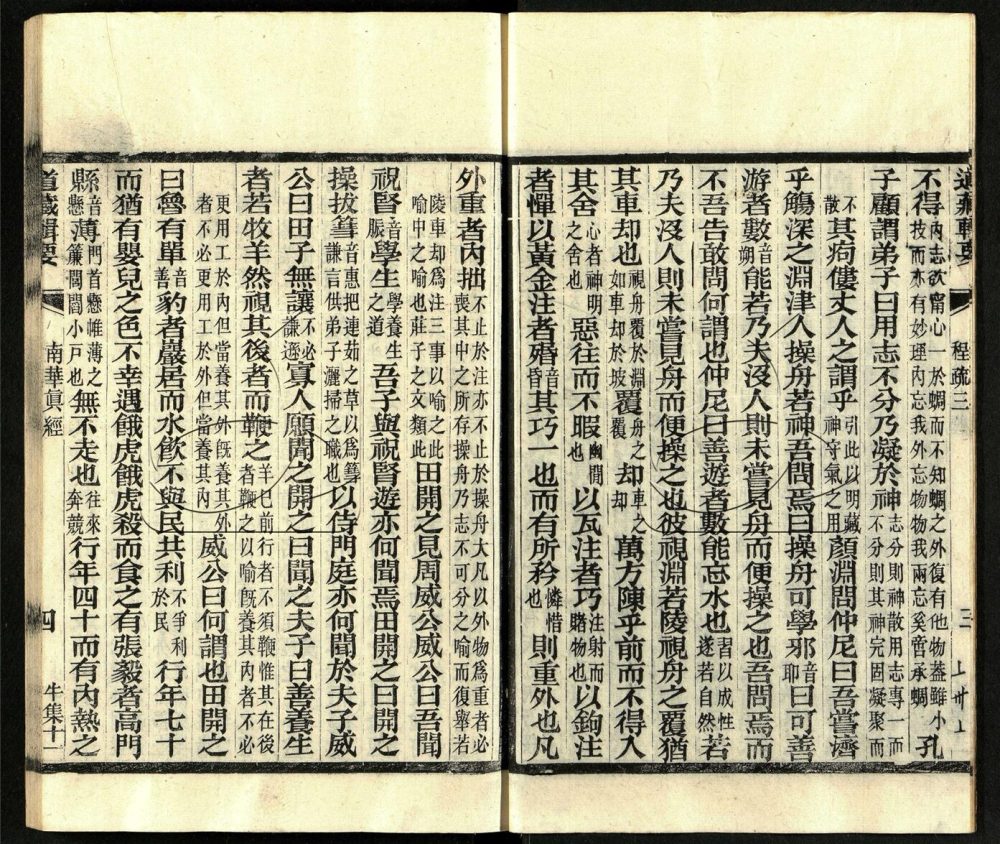 道藏輯要 程疏三 三
不得內志欲甯心一於蜩而不知蜩之外復有他物葢雖小技而亦有妙理內忘我外忘物物我兩忘奚啻承蜩孔
子顧謂弟子曰用志不分乃凝於神志分則神散用志專一而不分則其神完固凝聚而
不散其痀僂丈人之謂乎引此以明藏神守氣之用顏淵問仲尼曰吾嘗濟
乎觴深之淵津人操舟若神吾問焉曰操舟可學邪音耶曰可善
游者數音朔能若乃夫沒人則未嘗見舟而便操之也吾問焉而
不吾告敢問何謂也仲尼曰善游者數能忘水也習以成性遂若自然若
乃夫沒人則未嘗見舟而便操之也彼視淵若陵視舟之覆猶
其車却也視舟覆於淵如車却於坡覆舟之覆却車之却萬方陳乎前而不得入
其舍心者神明之舍也惡往而不暇幽閒也以瓦注者巧注射而賭物也以鉤注
者憚以黃金注者㛰音昏其巧一也而有所矜憐惜也則重外也凡
外重者內拙不止於注亦不止於操舟大凡以外物爲重者必喪其中之所存操舟乃志不可分之喻而復舉若
陵車却爲注三事以喻之此喻中之喻也莊子之文類此田開之見周威公威公曰吾聞
祝腎音脤學生學養生之道吾子與祝腎遊亦何聞焉田開之曰開之
操拔篲音惠把連茹之草以爲篲謙言供弟子灑掃之職也以侍門庭亦何聞於夫子威
公曰田子無讓不必謙遜寡人願聞之開之曰聞之夫子曰善養生
者若牧羊然視其後者而鞭之羊已前行者不須鞭惟其在後者鞭之以喻旣養其內者不必
更用工於內但當養其外旣養其外者不必更用工於外但當養其內威公曰何謂也田開之
曰魯有單音善豹者巖居而水飮不與民共利不爭利於民行年七十
而猶有嬰兒之色不幸遇餓虎餓虎殺而食之有張毅者高門
縣音懸薄門首懸帷薄之簾閭閻小戸也無不走也往來奔競行年四十而有內熱之
道藏輯要 南華眞經 四 牛集十二